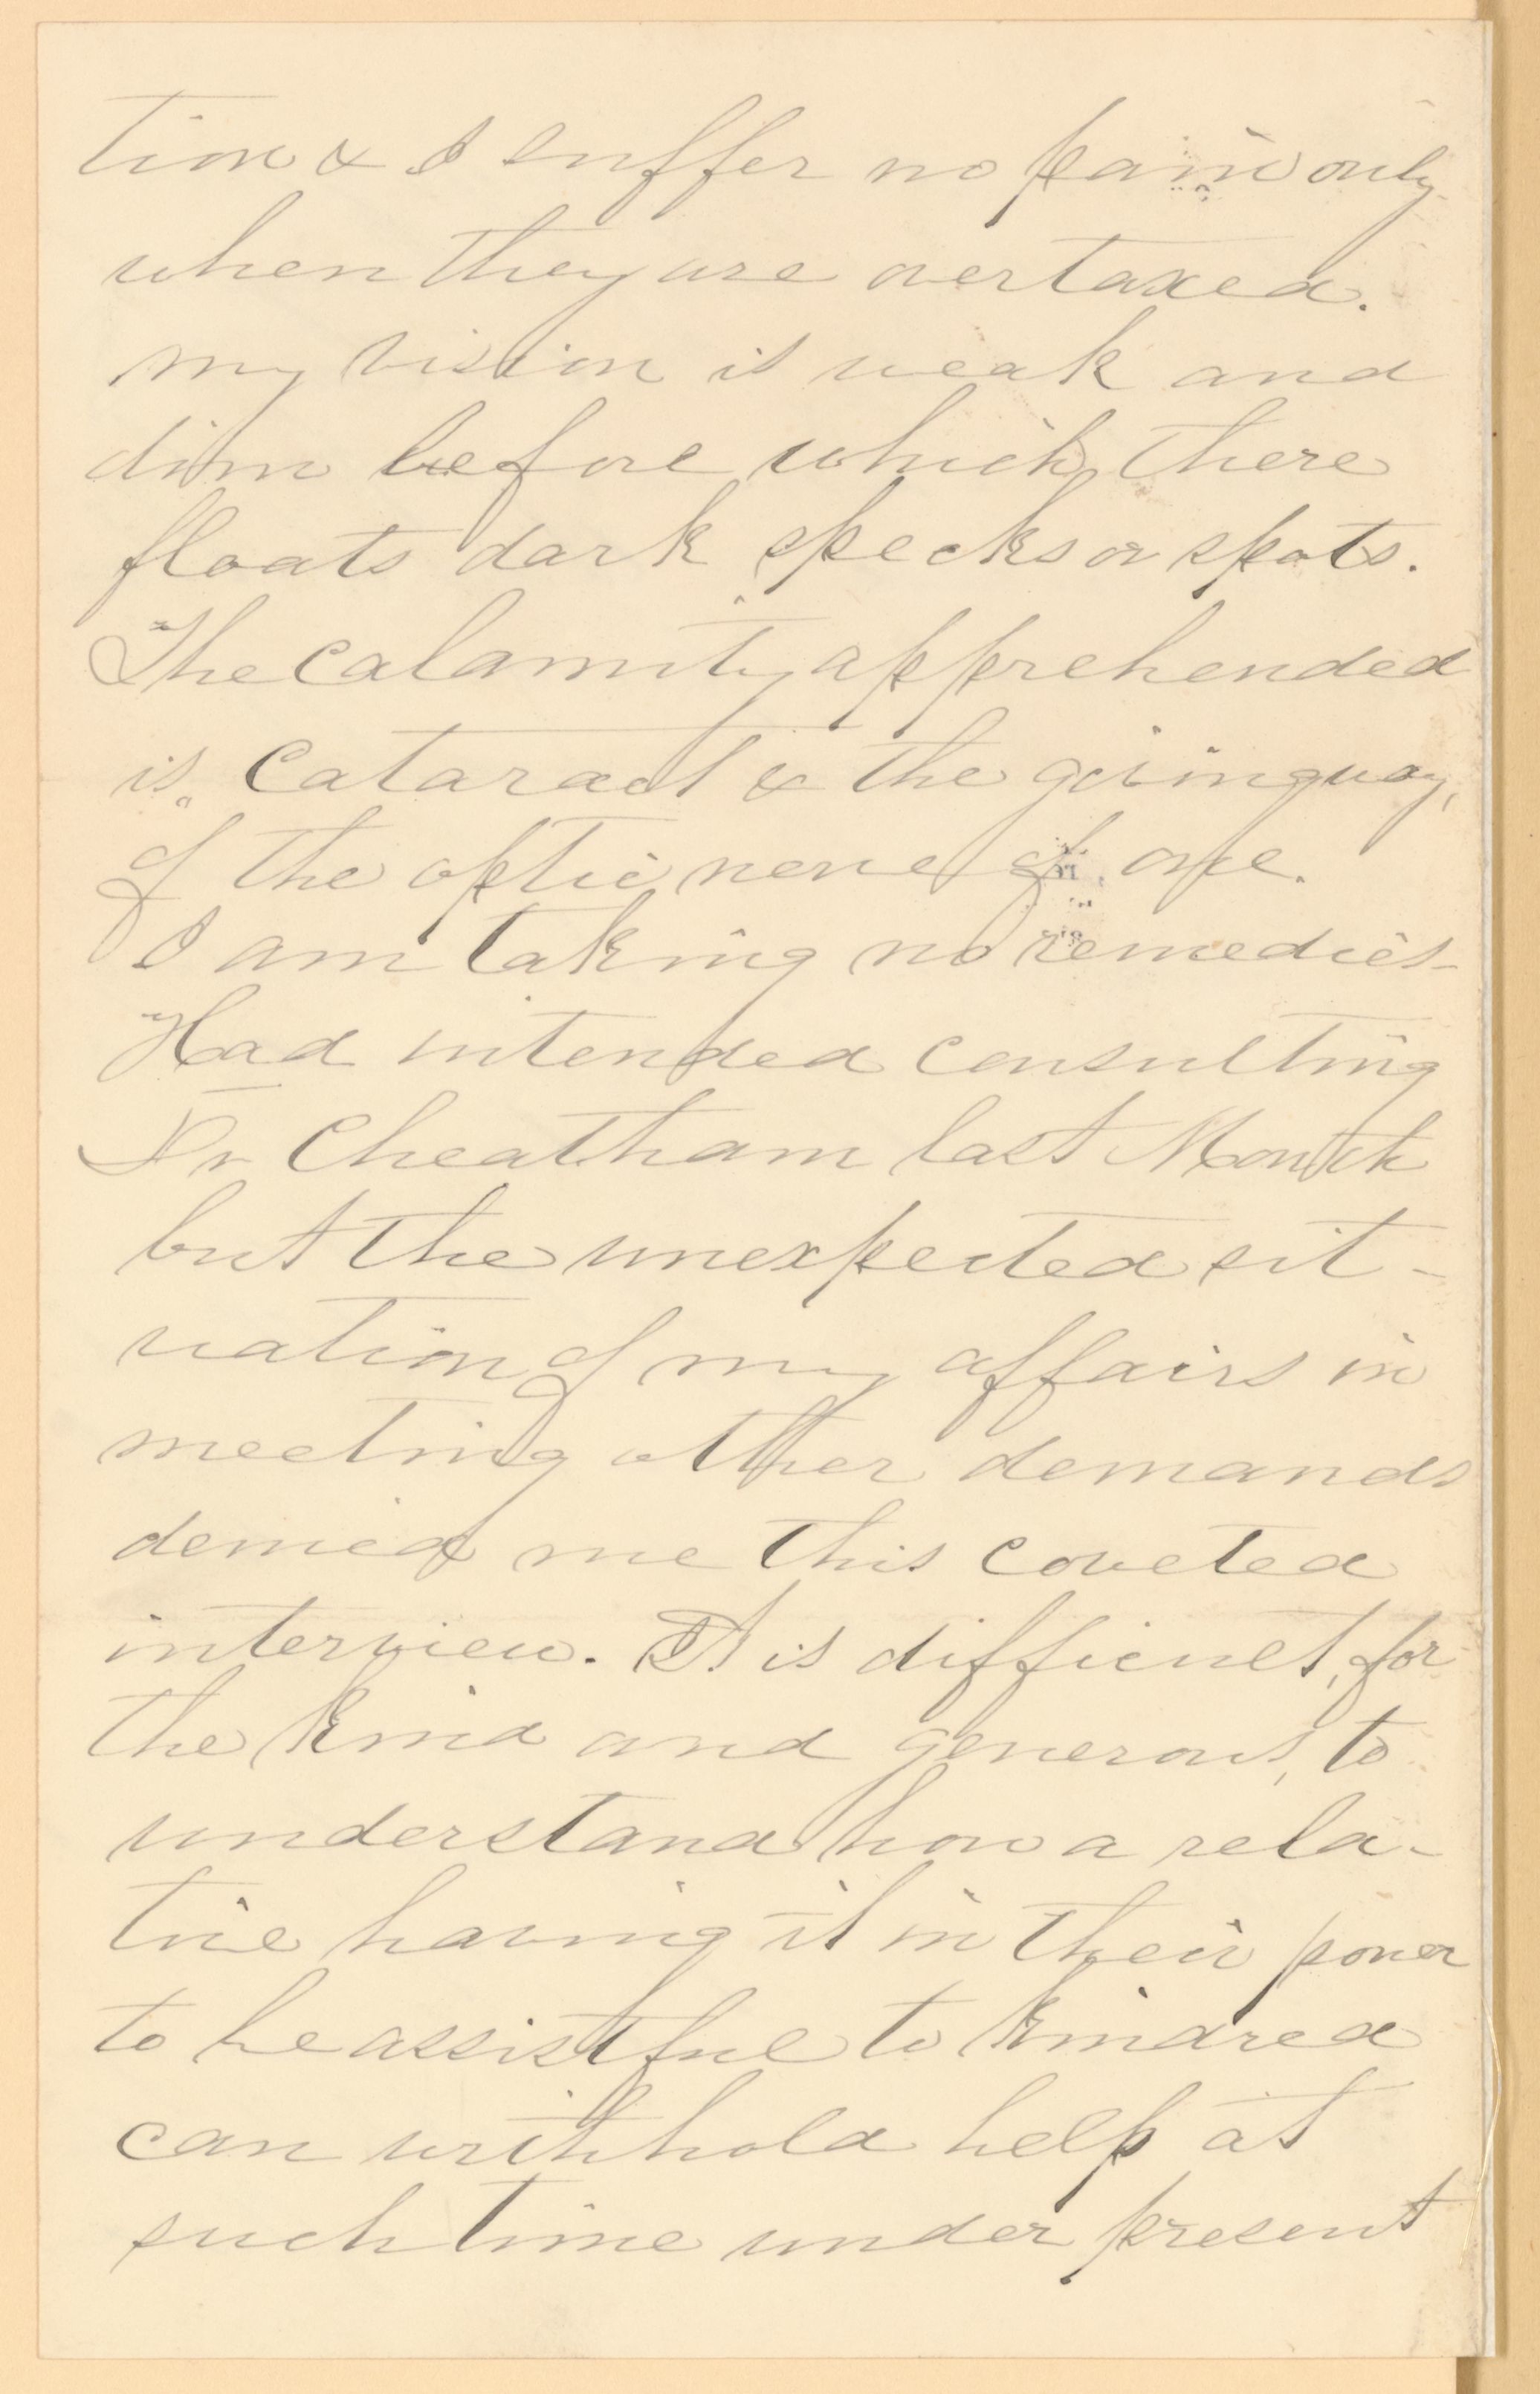 tion & I suffer no pain only
when they are overtaxed.
my vision is weak and
dim before which there
floats dark specks or spots.
The calamity apprehended
is, cataract & the giving way,
of the optic nerve of one.
I am taking no remedies-
Had intended consulting
Dr Cheatham last Month
but the unexpected sit-
uation of my affairs in
meeting other demands
denied me this coveted
interview. It is difficult, for
the kind and generous, to
understand how a rela-
tive having it in their power
to be assistful to kindred
can withhold help at
such time under present